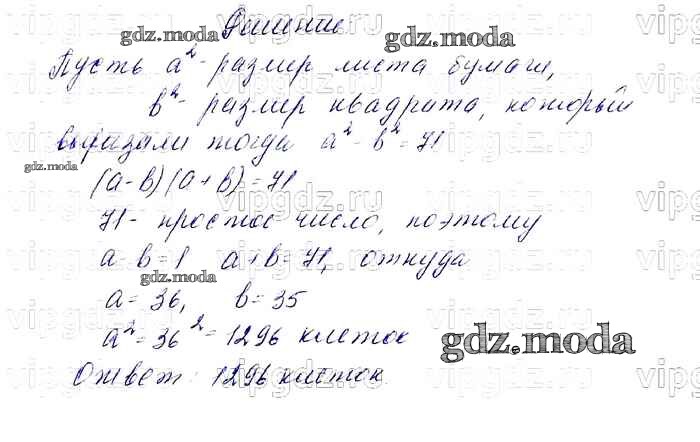 Решение
Пусть a²- размер листа бумаги,
b²- размер квадрата, который
вырезали тогда a²- b²= 71
(a-b)(a+b)=71
71- простое число, поэтому
a-b=1 a+b=71, откуда
a= 36, b=35
a²=36²=1296 клеток
Ответ: 1296 клеток.
gdz.moda
gdz.moda
gdz.moda
gdz.moda
gdz.moda
vipgdz.ru